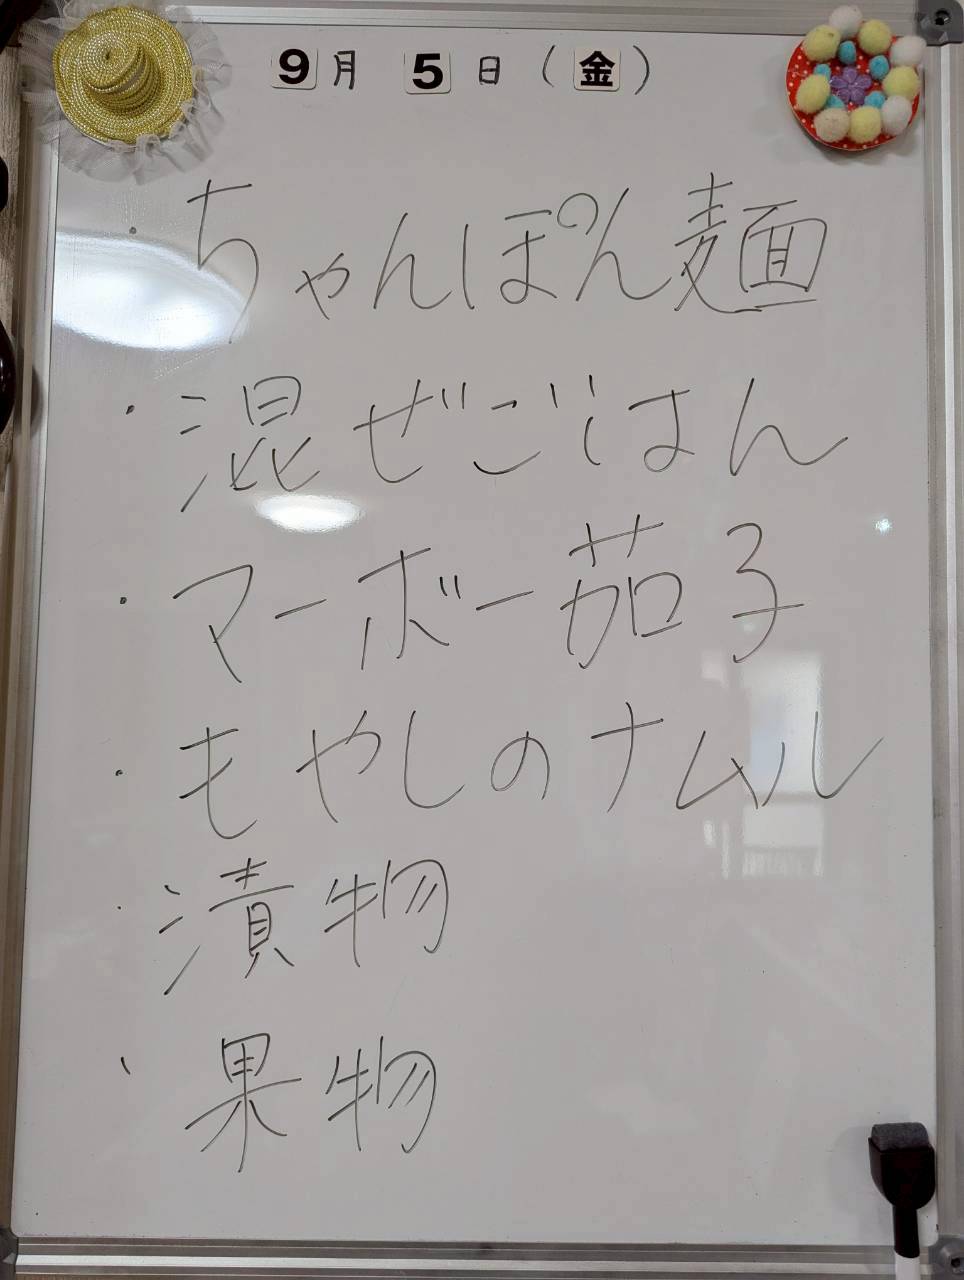 9月 5日(金)
・ちゃんぽん麺
・混ぜごはん
・マーボー茄子
・もやしのナムル
・漬物
・果物